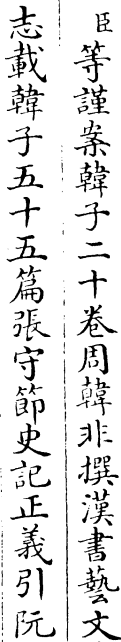 臣等謹案韓子二十卷周韓非撰漢書藝文
志載韓子五十五篇張守節史記正義引阮